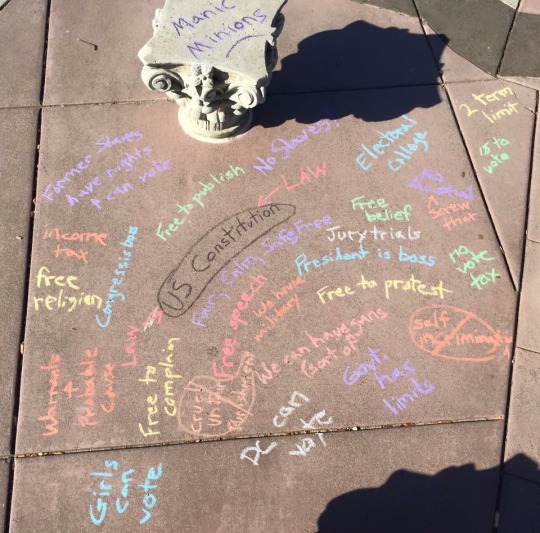 Manic
Minions
2 term
limit
Former Slaves
have rights
+ can vote
No Slaves!
Electoral
College
18 to
vote
Free to publish
LAW
Screw
that
Free
belief
US Constitution
Fair, Calm, Safe, Free
Jury trials
income
tax
Congress is boss
President is boss
no
vote
tax
free
religion
We have
military
Free to protest
LAW
Free speech
self
We can have guns
Govt. has
limits
Warrants
+
Probable
cause
Free to
complain
DC can
vote
Girls
can
vote